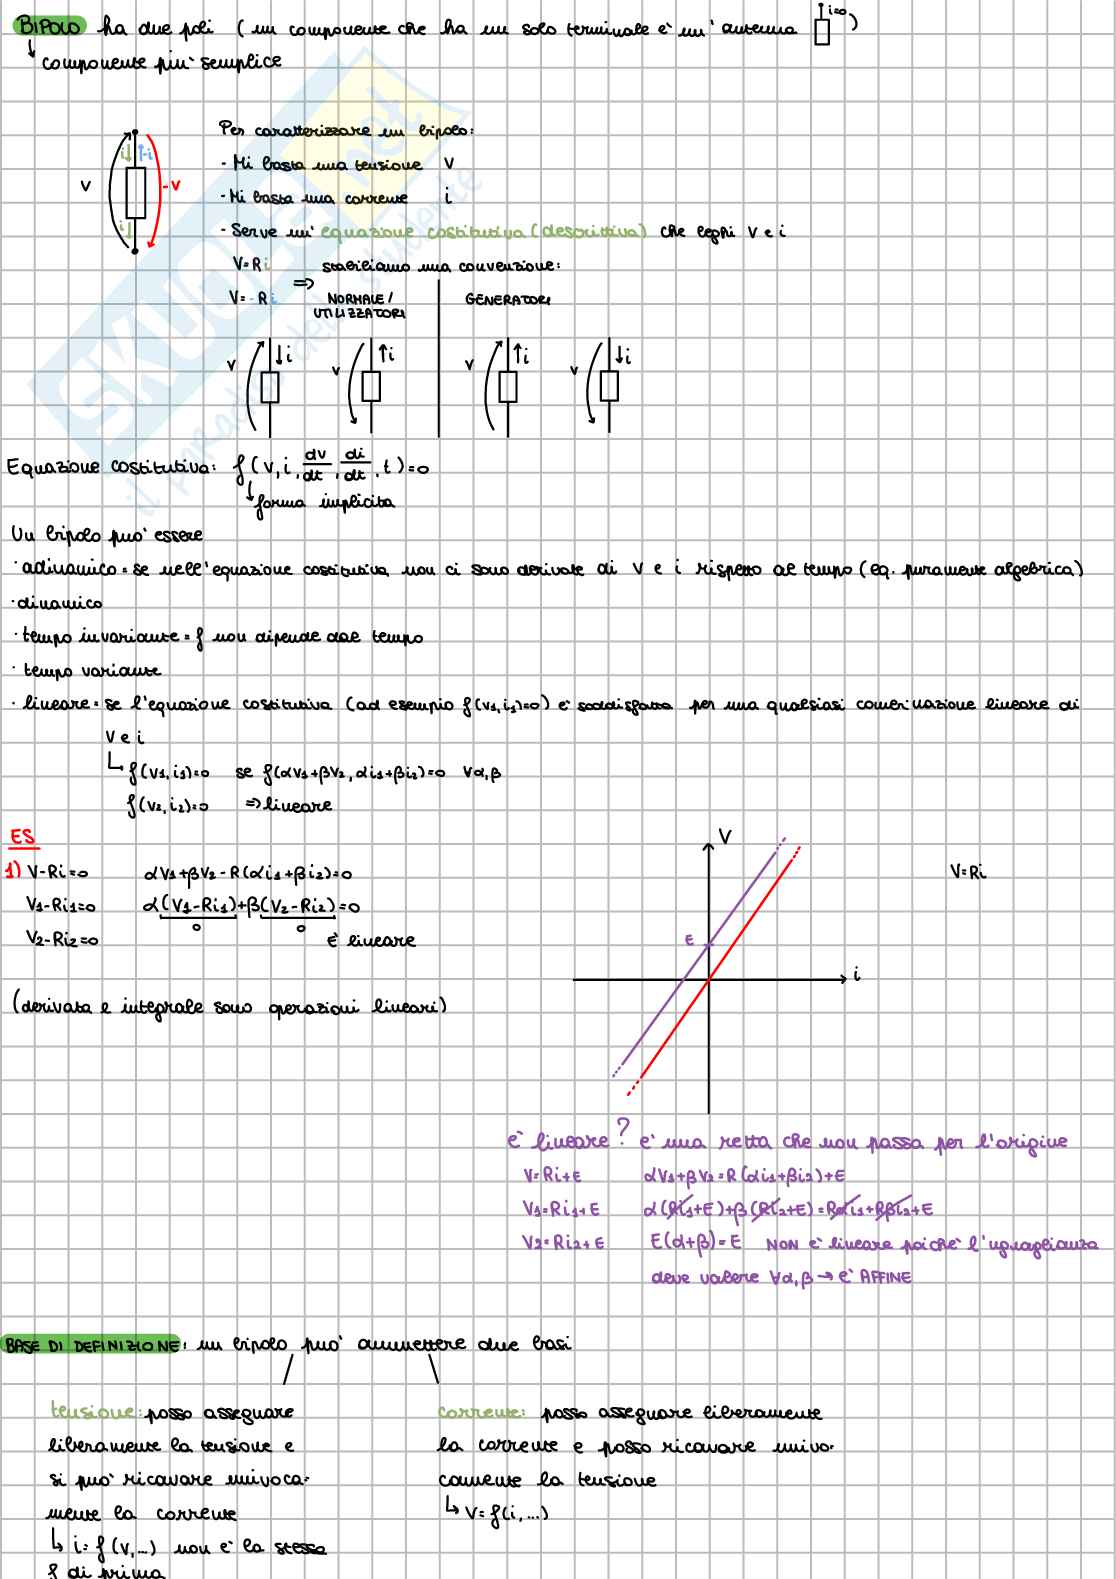 BIPOLO ha due poli ( un componente che ha un solo terminale è un' antenna i=0 )
componente piu' semplice
Per caratterizzare un bipolo:
- Mi basta una tensione V
- Mi basta una corrente i
- Serve un' equazione costitutiva (descrittiva) che leghi V e i
V i -i -V i
V=Ri stabiliamo una convenzione:
V=-Ri => NORMALE/ UTILIZZATORI GENERATORI
V i V i V i V i
Equazione costitutiva: f(v,i,dv/dt,di/dt,t)=0
forma implicita
Un bipolo puo' essere
· adinamico = se nell'equazione costitutiva non ci sono derivate di V e i rispetto al tempo (eq. puramente algebrica)
· dinamico
· tempo invariante = f non dipende dal tempo
· tempo variante
· lineare = se l'equazione costitutiva (ad esempio f(v1,i1)=0) e' soddisfatta per una qualsiasi combinazione lineare di
V e i
f(v1,i1)=0 se f(αv1+βv2,αi1+βi2)=0 ∀α,β
f(v2,i2)=0 => lineare
ES
1) V-Ri=0 αV1+βV2-R(αi1+βi2)=0
V1-Ri1=0 α(V1-Ri1)+β(V2-Ri2)=0
0 0
V2-Ri2=0 E' lineare
(derivata e integrale sono operazioni lineari)
V
V=Ri
E
i
e' lineare? e' una retta che non passa per l'origine
V=Ri+E αV1+βV2=R(αi1+βi2)+E
V1=Ri1+E α(Ri1+E)+β(Ri2+E)=Rαi1+Rβi2+E
V2=Ri2+E E(α+β)=E NON e' lineare poiche' l'uguaglianza
deve valere ∀α,β → e' AFFINE
BASE DI DEFINIZIONE: un bipolo puo' ammettere due basi
tensione: posso assegnare
liberamente la tensione e
si puo' ricavare univoca-
mente la corrente
↳ i=f(v,...) non e' la stessa
f di prima
corrente: posso assegnare liberamente
la corrente e posso ricavare univo-
camente la tensione
↳ V=f(i,...)
SKUOLA.net
il paradiso dello studente